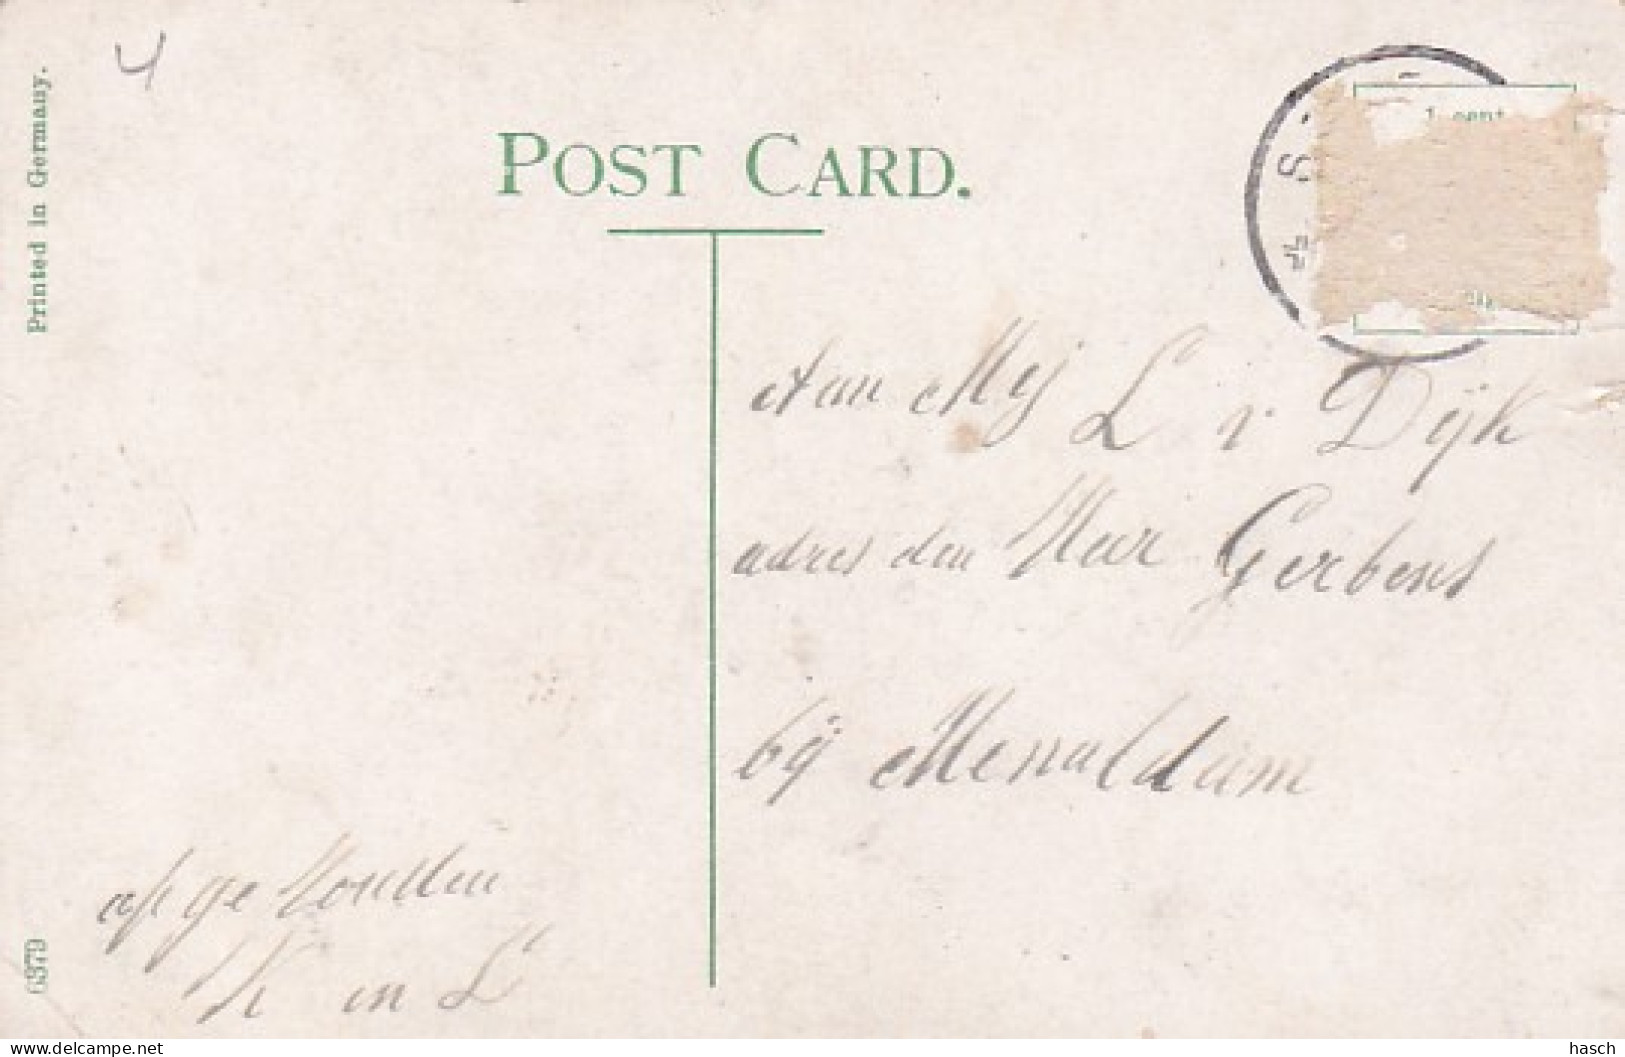 4
Printed in Germany.
POST CARD.
1 cent
S
Aan Mej L v Dijk
adres den Heer Gerbens
bij Menaldum
K en L
6379
delcampe.net
hasch